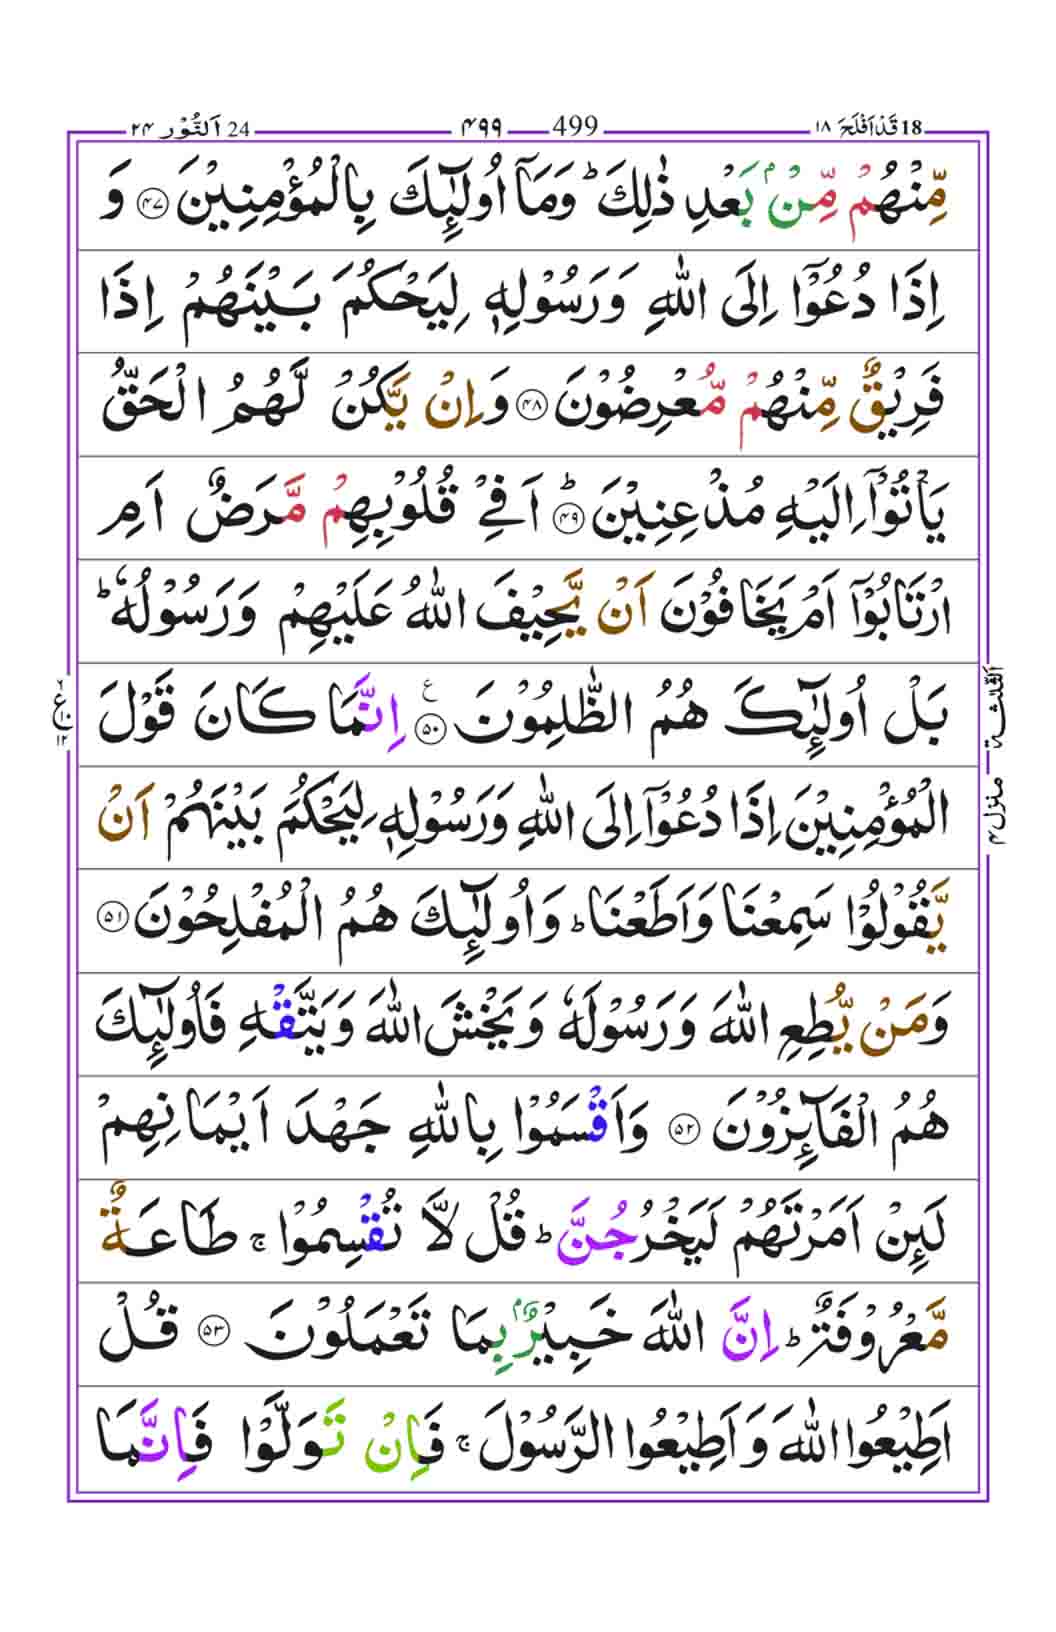 18 قَدْ اَفْلَحَ ١٨ 499 ۴۹۹ 24 اَلنُّوْر ٢۴
مِّنْهُمْ مِّنْۢ بَعْدِ ذٰلِكَ ؕ وَمَاۤ اُولٰٓئِكَ بِالْمُؤْمِنِيْنَ ۴۷ وَ
اِذَا دُعُوْۤا اِلَى اللّٰهِ وَرَسُوْلِهٖ لِيَحْكُمَ بَيْنَهُمْ اِذَا
فَرِيْقٌ مِّنْهُمْ مُّعْرِضُوْنَ ۴۸ وَاِنْ يَّكُنْ لَّهُمُ الْحَقُّ
يَاْتُوْۤا اِلَيْهِ مُذْعِنِيْنَ ؕ ۴۹ اَفِيْ قُلُوْبِهِمْ مَّرَضٌ اَمِ
ارْتَابُوْۤا اَمْ يَخَافُوْنَ اَنْ يَّحِيْفَ اللّٰهُ عَلَيْهِمْ وَرَسُوْلُهٗ ؕ
بَلْ اُولٰٓئِكَ هُمُ الظّٰلِمُوْنَ ۵۰ ع اِنَّمَا كَانَ قَوْلَ
الْمُؤْمِنِيْنَ اِذَا دُعُوْۤا اِلَى اللّٰهِ وَرَسُوْلِهٖ لِيَحْكُمَ بَيْنَهُمْ اَنْ
يَّقُوْلُوْا سَمِعْنَا وَاَطَعْنَا ؕ وَاُولٰٓئِكَ هُمُ الْمُفْلِحُوْنَ ۵۱
وَمَنْ يُّطِعِ اللّٰهَ وَرَسُوْلَهٗ وَيَخْشَ اللّٰهَ وَيَتَّقْهِ فَاُولٰٓئِكَ
هُمُ الْفَآئِزُوْنَ ۵۲ وَاَقْسَمُوْا بِاللّٰهِ جَهْدَ اَيْمَانِهِمْ
لَئِنْ اَمَرْتَهُمْ لَيَخْرُجُنَّ ؕ قُلْ لَّا تُقْسِمُوْا ۚ طَاعَةٌ
مَّعْرُوْفَةٌ ؕ اِنَّ اللّٰهَ خَبِيْرٌۢ بِمَا تَعْمَلُوْنَ ۵۳ قُلْ
اَطِيْعُوا اللّٰهَ وَاَطِيْعُوا الرَّسُوْلَ ۚ فَاِنْ تَوَلَّوْا فَاِنَّمَا
الثلثة
منزل ۴
ع
١٢